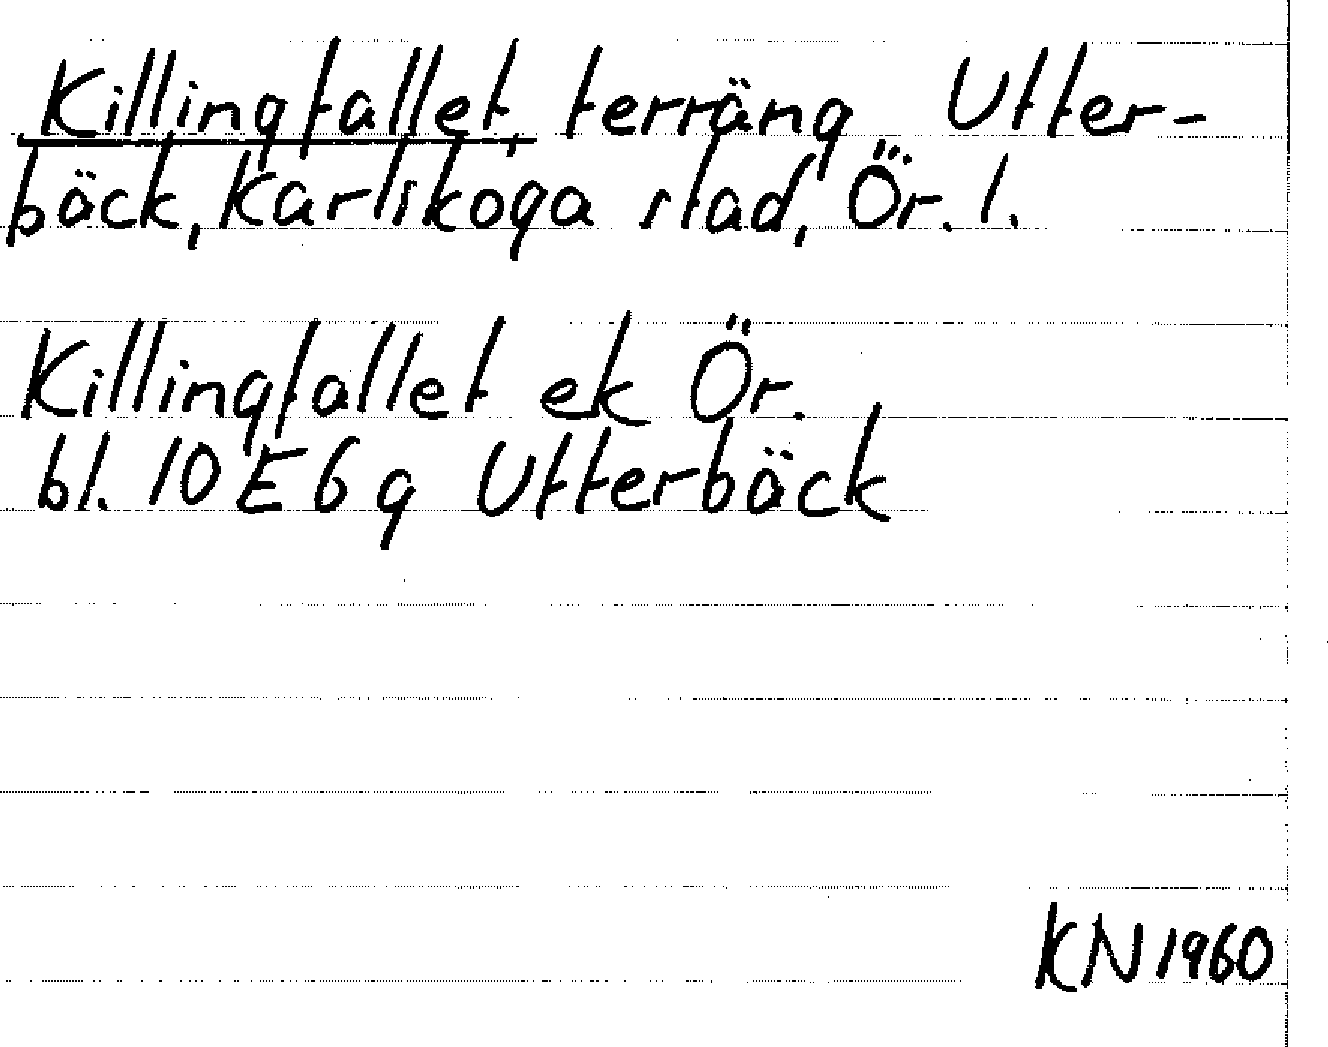 Killingfallet, terräng Utter-
bäck, Karlskoga stad, Ör. l.
Killingfallet ek Ör.
bl. 10 E 6 g Utterbäck
KN 1960